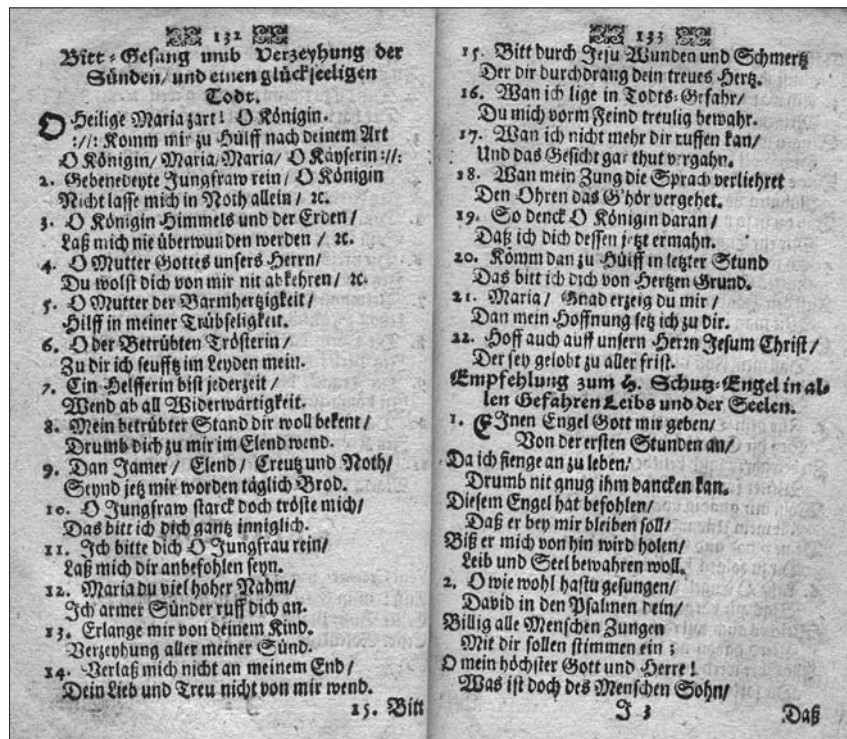 132
Bitt-Gesang umb Verzeyhung der
Sünden/ und einen glückseeligen
Todt.
O Heilige Maria zart! O Königin.
:/: Komm mir zu Hülff nach deinem Art
O Königin/ Maria/Maria/ O Käyserin :/:
2. Gebenedeyte Jungfraw rein/ O Königin
Nicht lasse mich in Noth allein/ ꝛc.
3. O Königin Himmels und der Erden/
Laß mich nie überwunden werden / ꝛc.
4. O Mutter Gottes unsers Herrn/
Du wolst dich von mir nit abkehren/ ꝛc.
5. O Mutter der Barmhertzigkeit/
Hilff in meiner Trübseligkeit.
6. O der Betrübten Trösterin/
Zu dir ich seufftz im Leyden mein.
7. Ein Helfferin bist jederzeit /
Wend ab all Widerwärtigkeit.
8. Mein betrübter Stand dir woll bekent/
Drumb dich zu mir im Elend wend.
9. Dan Jamer / Elend/ Creutz und Noth/
Seynd jetz mir worden täglich Brod.
10. O Jungfraw starck doch tröste mich/
Das bitt ich dich gantz inniglich.
11. Ich bitte dich O Jungfrau rein/
Laß mich dir anbefohlen seyn.
12. Maria du viel hoher Nahm/
Ich armer Sünder ruff dich an.
13. Erlange mir von deinem Kind.
Verzeyhung aller meiner Sünd.
14. Verlaß mich nicht an meinem End/
Dein Lieb und Treu nicht von mir wend.
15. Bitt
133
15. Bitt durch Jesu Wunden und Schmertz
Der dir durchdrang dein treues Hertz.
16. Wan ich lige in Todts-Gefahr/
Du mich vorm Feind treulig bewahr.
17. Wan ich nicht mehr dir ruffen kan/
Und das Gesicht gar thut vergahn.
18. Wan mein Zung die Sprach verliehret
Den Ohren das G'hör vergehet.
19. So denck O Königin daran/
Daß ich dich dessen jetzt ermahn.
20. Komm dan zu Hülff in letzter Stund
Das bitt ich dich von Hertzen Grund.
21. Maria/ Gnad erzeig du mir /
Dan mein Hoffnung setz ich zu dir.
22. Hoff auch auff unsern Herrn Jesum Christ/
Der sey gelobt zu aller frist.
Empfehlung zum H. Schutz-Engel in al-
len Gefahren Leibs und der Seelen.
1. EInen Engel Gott mir geben/
Von der ersten Stunden an/
Da ich fienge an zu leben/
Drumb nit gnug ihm dancken kan.
Diesem Engel hat befohlen/
Daß er bey mir bleiben soll/
Biß er mich von hin wird holen/
Leib und Seel bewahren woll.
2. O wie wohl hastu gesungen/
David in den Psalmen dein/
Billig alle Menschen Zungen
Mit dir sollen stimmen ein;
O mein höchster Gott und Herre!
Was ist doch des Menschen Sohn/
J 3 Daß